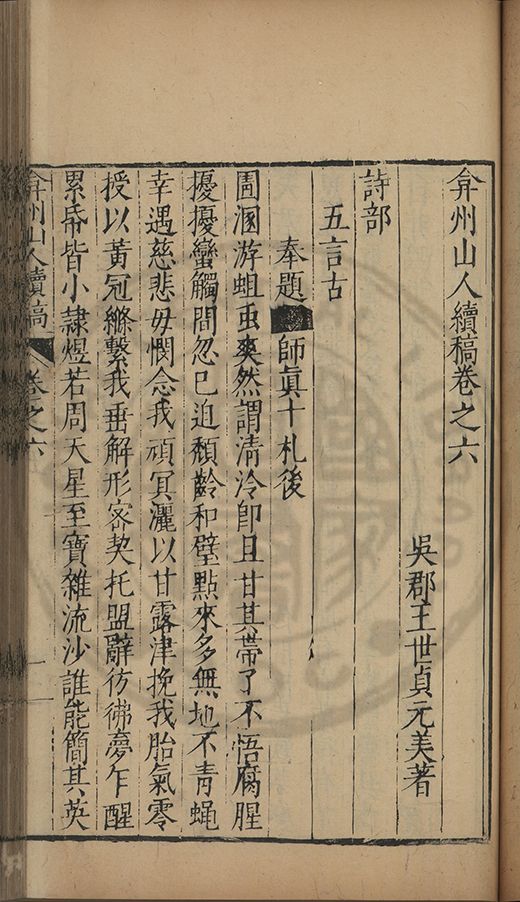 弇州山人續稿卷之六
吳郡王世貞元美著
詩部
五言古
奉題師眞十札後
圊溷游蛆虫爽然謂清泠卽且甘其帶了不悟腐腥
擾擾蠻觸間忽已迫頹齡和璧點來多無地不青蝇
幸遇慈悲母憫念我頑冥灑以甘露津挽我胎氣零
授以黃冠縧繫我垂解形宻契托盟辭彷彿夢乍醒
累帋皆小隸煜若周天星至寶雜流沙誰能簡其英
弇州山人續稿
卷之六
一